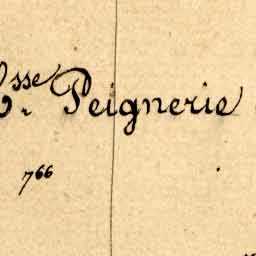 Bsse. Peignerie
766